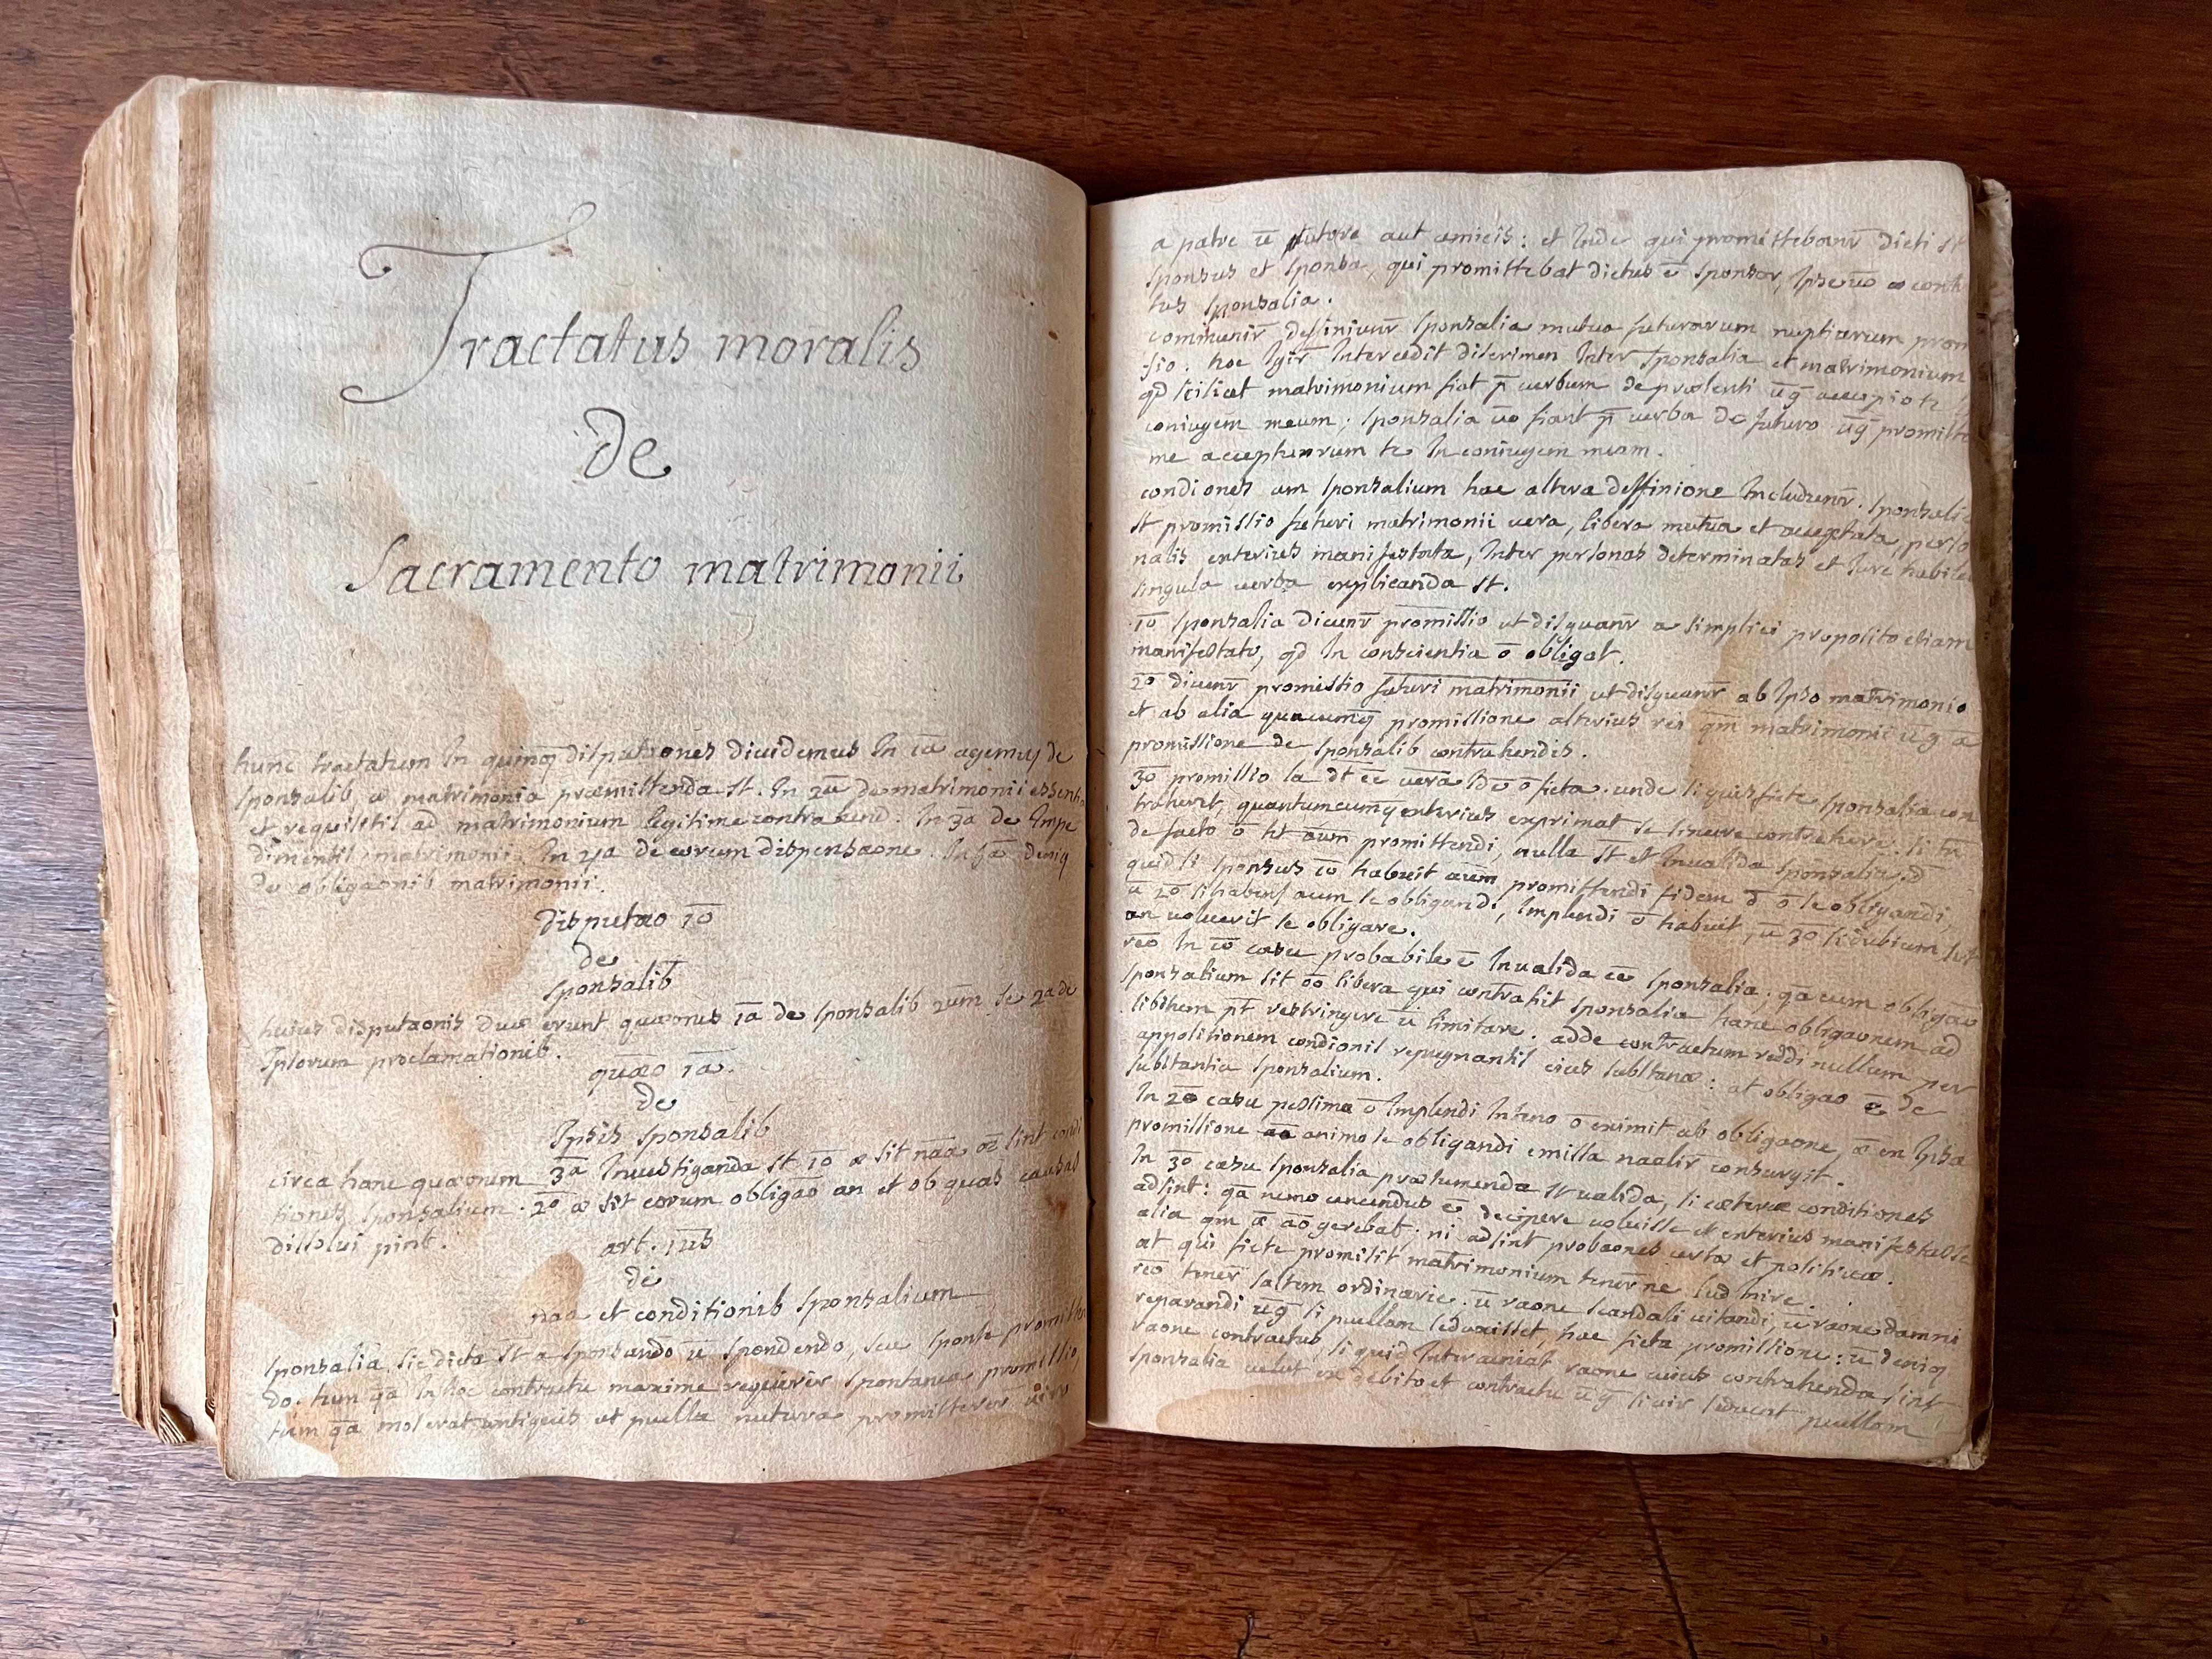 Tractatus moralis
de
Sacramento matrimonii
hunc tractatum In quinq̄ disputaones dividemus In 1ā agemus de
sponsalib, æ matrimonia præmittenda st. In 2ā de matrimonii essentia
et requisitis ad matrimonium legitime contrahend. In 3ā de Impe
dimentis matrimonii. In 4ā de eorum dispensaone. In 5ā deniq
de obligaonib matrimonii.
disputao 1ō
de
sponsalib
huius disputaonis duæ erunt quæones 1ā de sponsalib 2ūm se 2ā de
Ipsorum proclamationib.
quæo 1ā.
de
Ipsis sponsalib
circa hanc quæonem 3ā Investiganda st 1ō æ sit nāa sint condi
tiones sponsalium. 2º æ sit eorum obligāo an et ob quas causas
dissolui pint.
art. 1us
de
naa et conditionib sponsalium
sponsalia sic dicta st a sponsando ū spondendo, seu sponte promitten
do. tum q̄a In hoc contractu maxime requirir spontanea promissio,
tum q̄a mos erat antiquis ut puella nutura promitterer viro
a patre ū tutore aut amicis: et Inde qui promittebanr dicti st
sponsus et sponsa, qui promittebat dictus ē sponsor, Ipse ūo contrac
tus sponsalia.
communir deffiniunr sponsalia mutua futurarum nuptiarum promis
sio. hoc Igir Intercedit discrimen Inter sponsalia et matrimonium
qd scilicet matrimonium fiat p̄ verbum de præsenti ūg accipio te
coniugem meam: sponsalia ūo fiant p̄ verba de futuro ūg promitto
me accepturum te In coniugem meam.
condiones am sponsalium hac altera deffinione Includunr. sponsalia
st promissio futuri matrimonii vera, libera mutua et acceptata, perso
nalis exterius manifestata, Inter personas determinatas et Iure habiles
singula verba explicanda st.
1ō sponsalia dicunr promissio ut disguanr a simplici proposito etiam
manifestato, qd In conscientia ō obligat.
2º dicunr promissio futuri matrimonii ut disguanr ab Ipso matrimonio
et ab alia quacumq̄ promissione alterius rei qm matrimonii ūg a
promissione de sponsalib contrahendis.
3º promissio la dt ēe vera Id ō ficta. unde si quis ficte sponsalia con
traheret, quantumcumq exterius exprimat se sincere contrahere: si tn
de facto ō ht aum promittendi, nulla st et Invalida sponsalia. sd
quid si sponsus 1ō habuit aum promittendi fidem d ō se obligandi,
ū 2ō si habens aum se obligandi, Implendi ō habuit, ū 3º si dubium sit
an voluerit se obligare.
reo In 1ō casu probabile ē Invalida ēe sponsalia; q̄a cum obligāo
sponsalium sit ōo libera qui contrahit sponsalia hanc obligaonem ad
libitum pt restringere ū limitare. adde contractum reddi nullum per
appositionem condionis repugnantis eius substanæ: at obligao ē de
substantia sponsalium.
In 2ō casu pessima ō Implendi Inteno ō eximit ab obligaone, æ ex Ipsa
promissione animo se obligandi emissa naalir consurgit.
In 3ō casu sponsalia præsumenda st valida, si cæteræ conditiones
adsint: q̄a nemo censendus ē decipere voluisse et exterius manifestasse
alia qm æ ao gerebat; ni adsint probaones certæ et positivæ.
at qui ficte promisit matrimonium tenerne Iud Inire.
reo tener saltem ordinarie. ū raone scandali vitandi, ū raone damni
reparandi ūg si puellam seduxisset, hac ficta promissione: ū deniq
raone contractus, si quid Interveniat raone cuius contrahenda sint
sponsalia velut ex debito et contractu ūg si vir seducat puellam